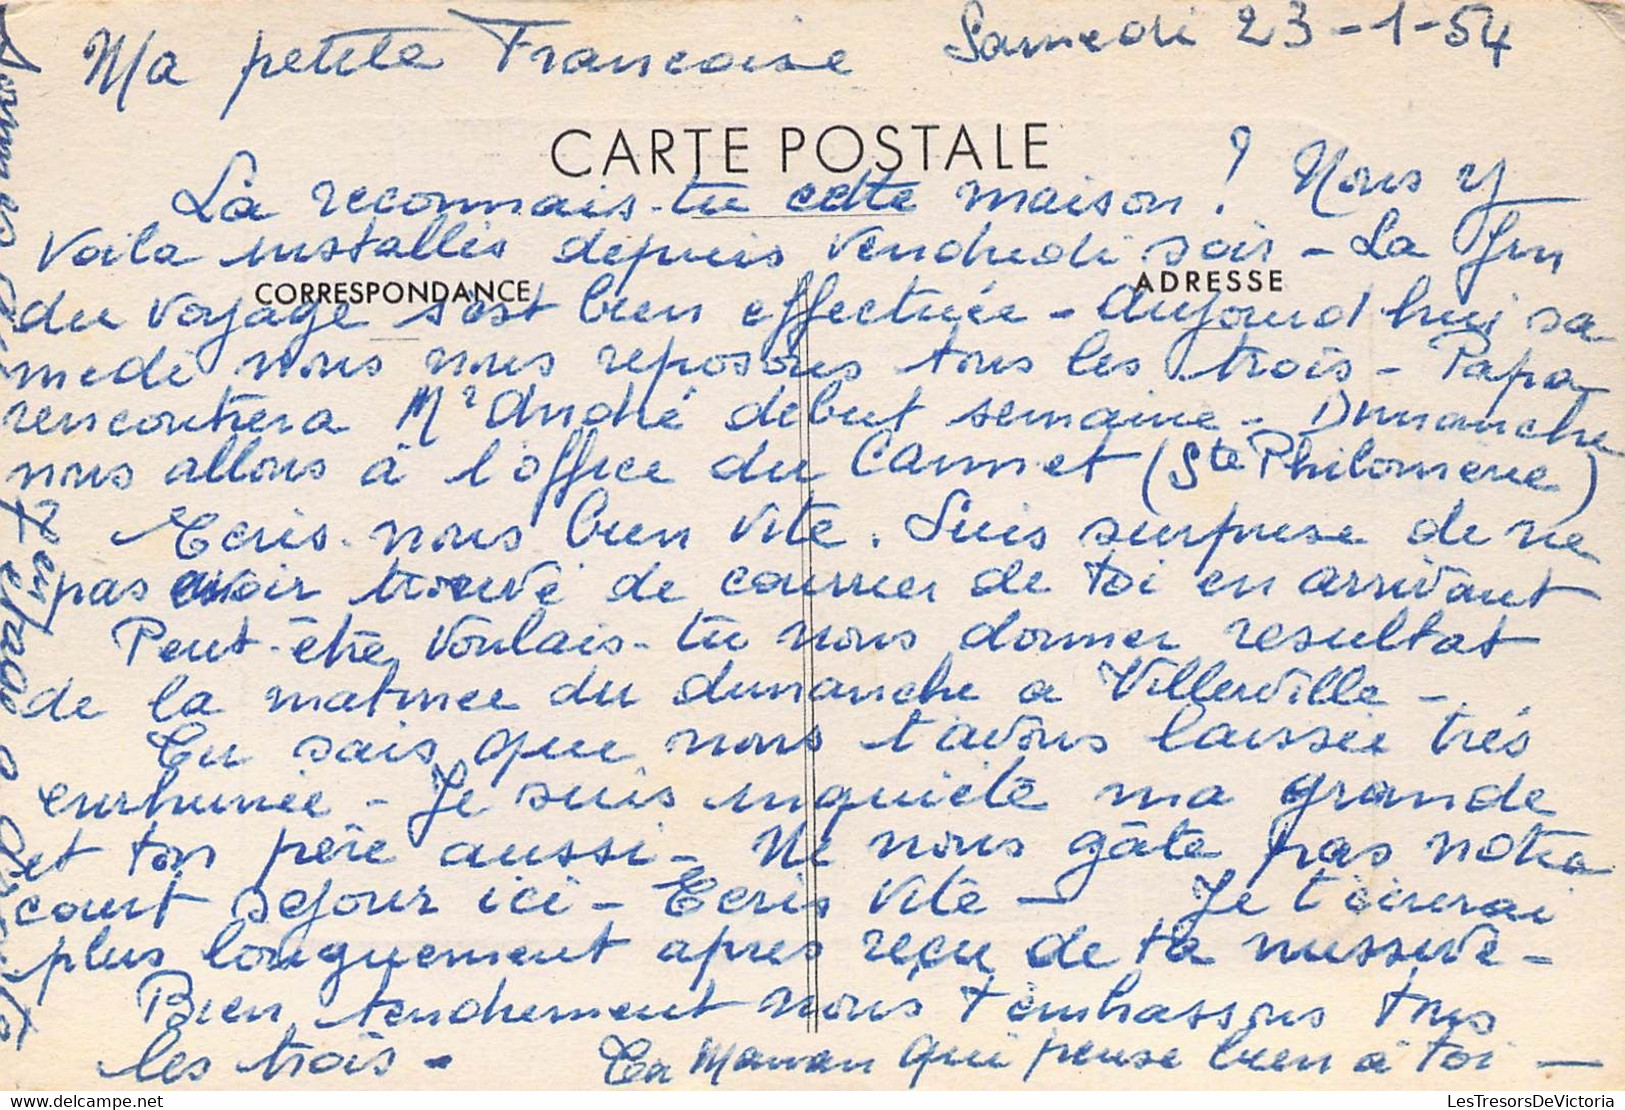 Ma petite Francoise Samedi 23-1-54
CARTE POSTALE
La reconnais-tu cette maison ? Nous y
voila installés depuis vendredi soir - La fin
CORRESPONDANCE
ADRESSE
du voyage s'est bien effectuée - Aujourd'hui sa
medi nous nous reposons tous les trois - Papa
rencontrera Mr André début semaine - Dimanche
nous allons à l'office du Cannet (Ste Philomene)
Ecris-nous bien vite. Suis surprise de ne
pas avoir trouvé de courrier de toi en arrivant
Peut-être voulais-tu nous donner resultat
de la matinee du dimanche a Villerville -
Tu sais que nous t'avons laissée très
enrhumée - Je suis inquiète ma grande
et ton père aussi - Ne nous gâte pas notre
court sejour ici - Ecris vite - Je t'écrirai
plus longuement après reçu de ta missive -
Bien tendrement nous t'embrassons tous
les trois - Ta Maman qui pense bien à toi -
Sommes
etage a droite
LesTresorsDeVictoria.com
LesTresorsDeVictoria